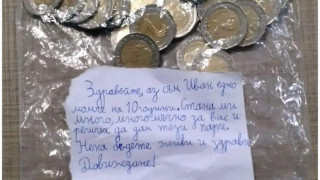 Здравейте, аз съм Иван едно
момче на 10 години. Стана ми
много, много мъчно за вас и
реших да дам тези пари.
Нека бъдете живи и здрави
Довиждане!